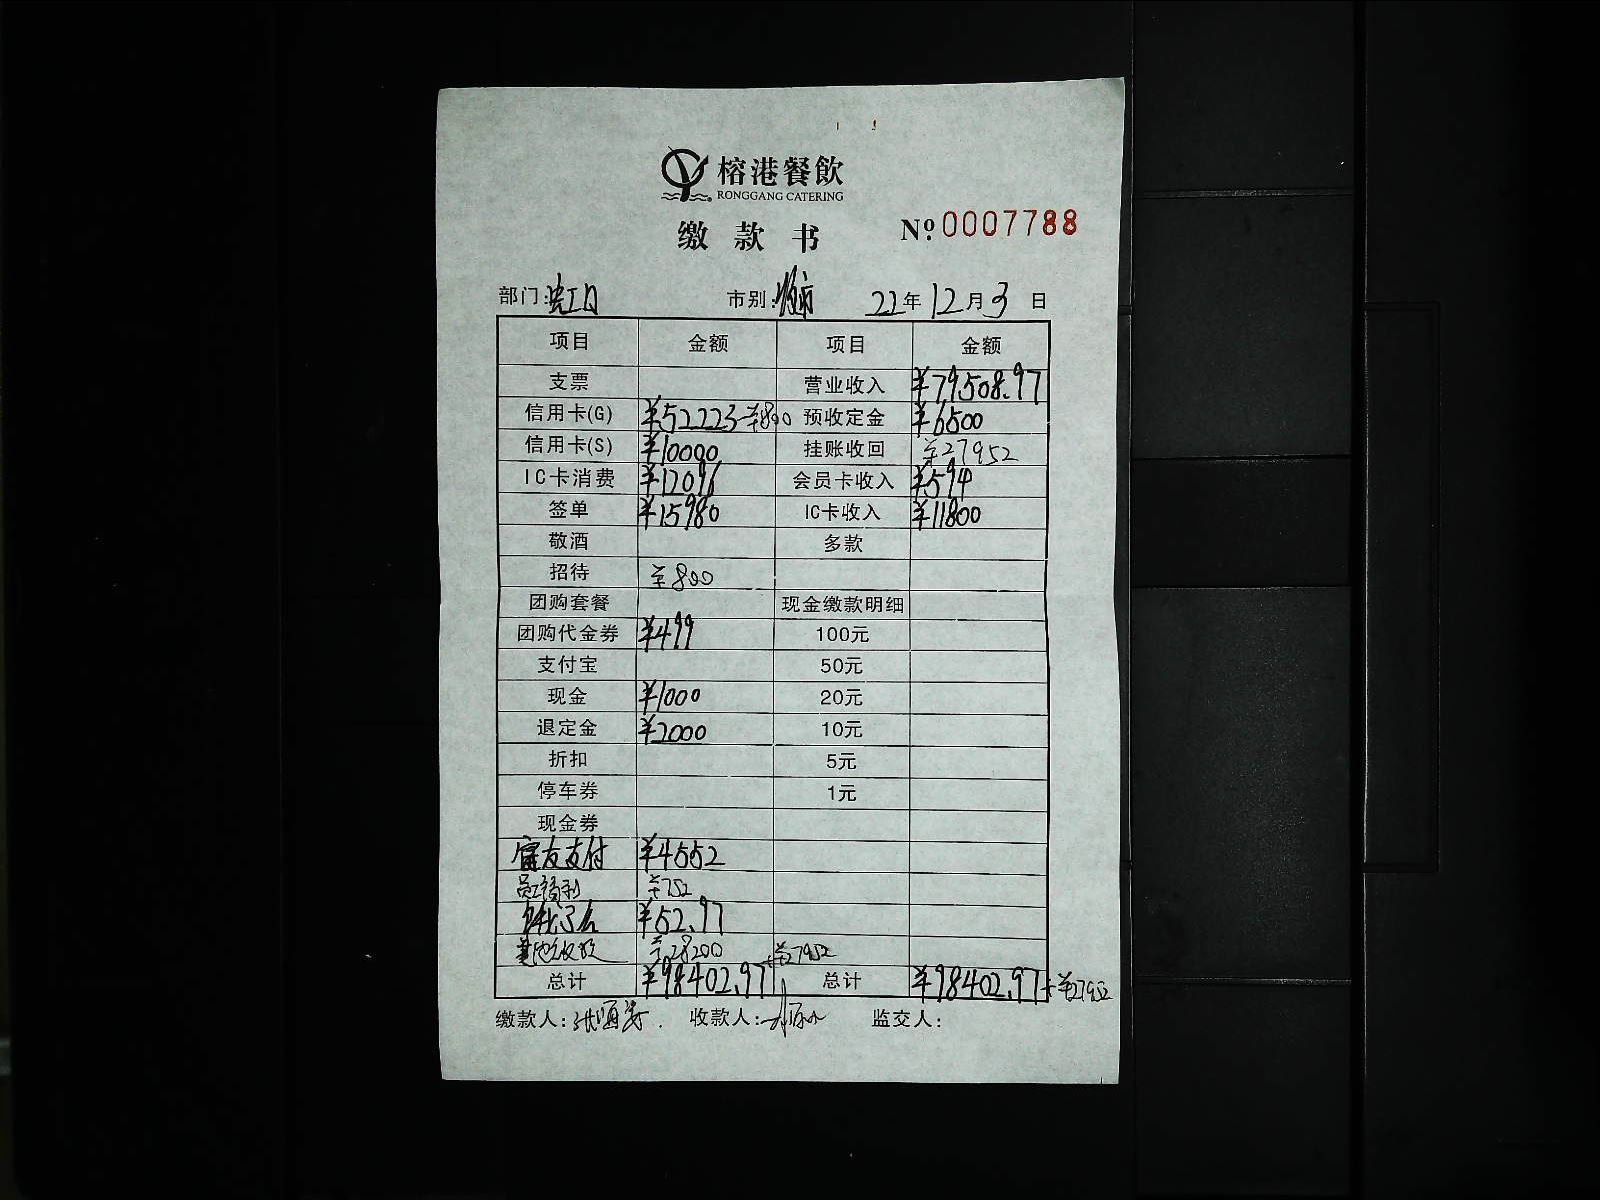 榕港餐飲
RONGGANG CATERING
缴款书 Nº.0007788
部门: 市别: 22年12月3日
项目 金额 项目 金额
支票 营业收入 ¥79508.97
信用卡(G) ¥52223-¥800 预收定金 ¥6500
信用卡(S) ¥10000 挂账收回 ¥27952
IC卡消费 ¥12096 会员卡收入 ¥594
签单 ¥15980 IC卡收入 ¥11800
敬酒 多款
招待 ¥800
团购套餐 现金缴款明细
团购代金券 ¥499 100元
支付宝 50元
现金 ¥1000 20元
退定金 ¥2000 10元
折扣 5元
停车券 1元
现金券
富友支付 ¥4552
员工福利 ¥752
饿了么 ¥52.97
¥28200
总计 ¥98402.97+¥27952 总计 ¥98402.97+¥27952
缴款人: 收款人: 监交人: